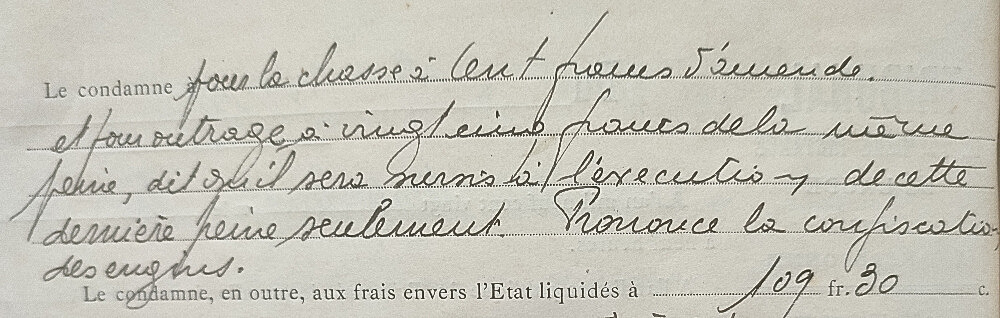 Le condamne à pour la chasse à Cent francs d'amende.
et pour outrage à vingt cinq francs de la même
peine, dit qu'il sera sursis à l'éxecution de cette
dernière peine seulement. Prononce la confiscation
des engins.
Le condamne, en outre, aux frais envers l'Etat liquidés à 109 fr. 30 c.